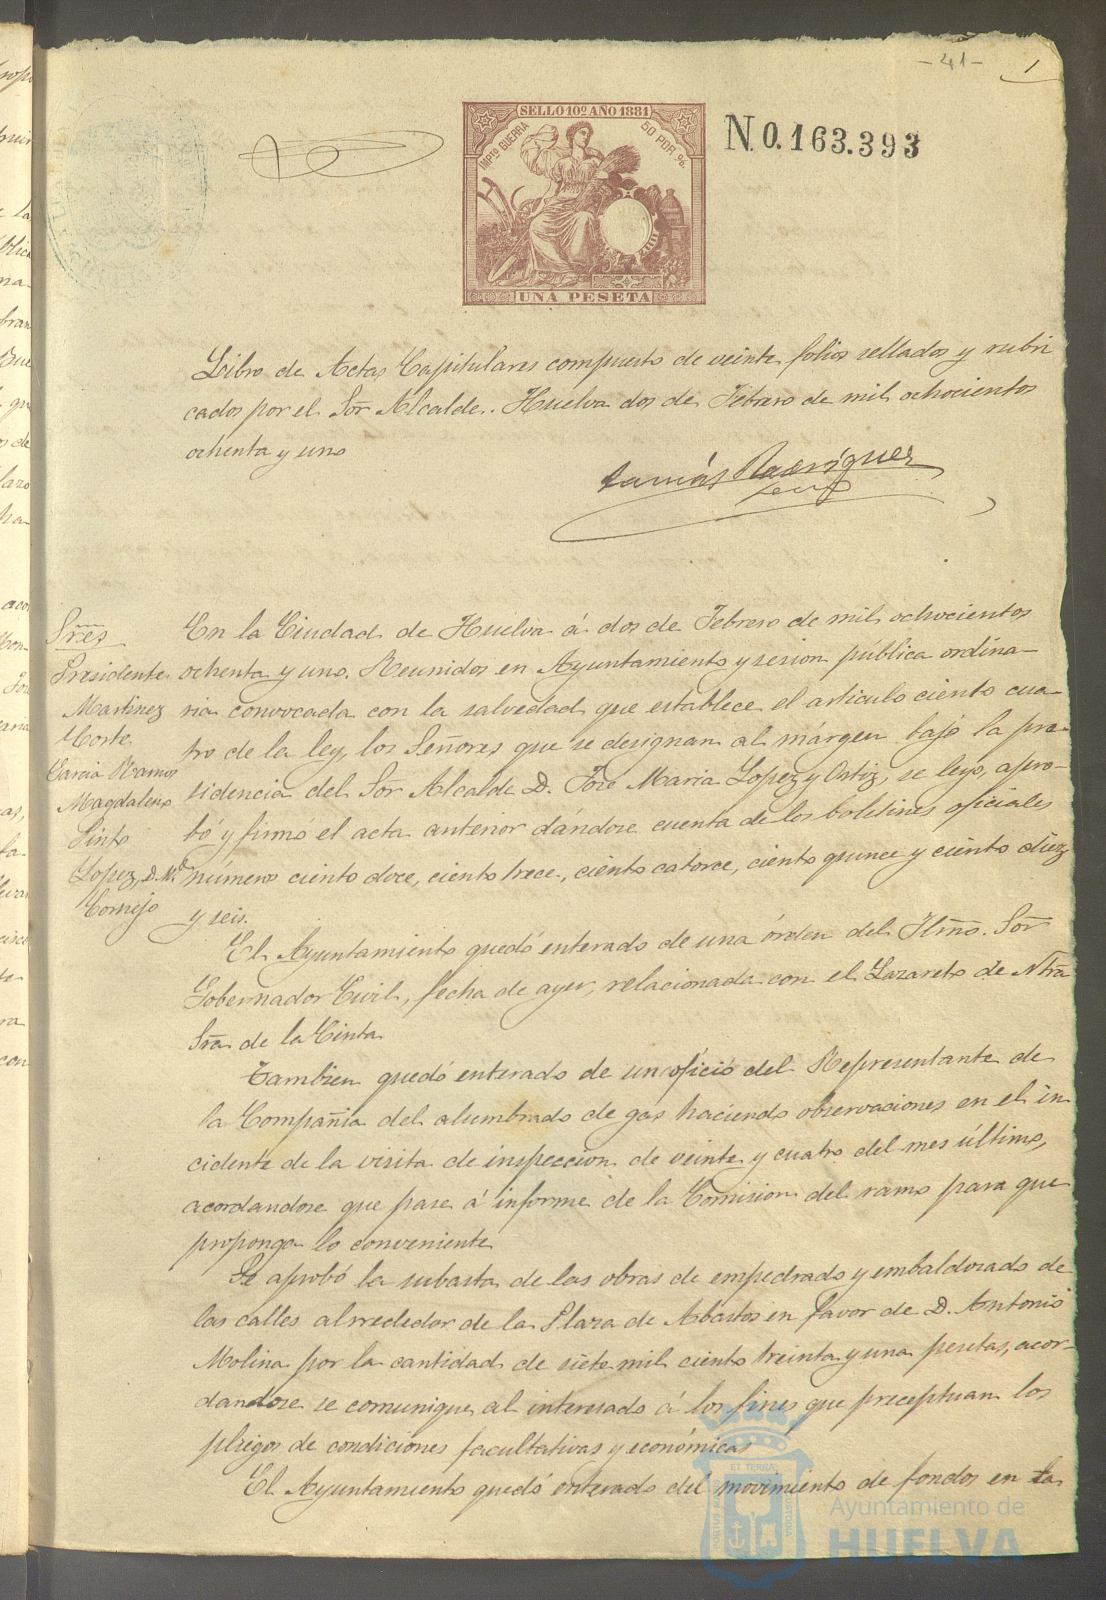 - 41 -
1
SELLO 10º AÑO 1881
IMPTO GUERRA
50 POR %
UNA PESETA
N.0.163.393
Libro de Actas Capitulares compuesto de veinte folios sellados y rubri
cados por el Sor Alcalde.. Huelva dos de Febrero de mil ochocientos
ochenta y uno
Tomás Rodríguez
Sres
Presidente
Martinez
Horte
Garcia Ramos
Magdaleno
Pinto
Lopez, D. Ml
Cornejo
En la Ciudad de Huelva á dos de Febrero de mil ochocientos
ochenta y uno. Reunidos en Ayuntamiento y sesion pública ordina-
ria convocada con la salvedad que establece el articulo ciento cua-
tro de la ley, los Señores que se designan al márgen bajo la pre-
sidencia del Sor Alcalde D. José Maria Lopez y Ortiz, se leyó, apro-
bó y firmó el acta anterior dándose cuenta de los boletines oficiales
número ciento doce, ciento trece, ciento catorce, ciento quince y ciento diez
y seis.
El Ayuntamiento quedó enterado de una órden del Iltmo. Sor
Gobernador Civil, fecha de ayer, relacionada con el Lazareto de Ntra
Sra de la Cinta
Tambien quedó enterado de un oficio del Representante de
la Compañia del alumbrado de gas haciendo observaciones en el in
cidente de la visita de inspeccion de veinte y cuatro del mes último,
acordandose que pase á informe de la Comision del ramo para que
proponga lo conveniente
Se aprobó la subasta de las obras de empedrado y embaldosado de
las calles alrrededor de la Plaza de Abastos en favor de D. Antonio
Molina por la cantidad de siete mil ciento treinta y una pesetas, acor-
dandose se comunique al interesado á los fines que preceptuan los
pliegos de condiciones facultativas y económicas
El Ayuntamiento quedó enterado del movimiento de fondos en la
Ayuntamiento de
HUELVA